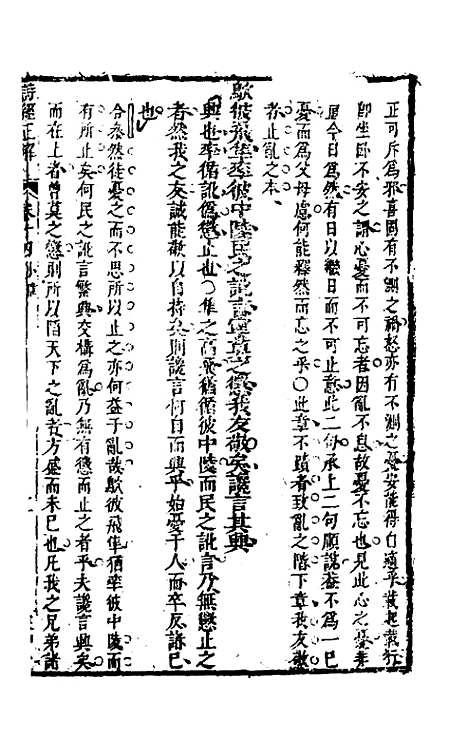 正可斥為邪喜固有不測之禍怒亦有不測之憂安能得自適乎載起載行
即坐卧不安之謂心憂而不可忘者因亂不息故憂不忘也見此心之憂非
屬今日為然有日以繼日而不可止意此二句承上二句順說蓋不為一已
憂而為父母慮何能釋然而忘之乎○此章不蹟者致亂之階下章我友敬
者止亂之本
鴥彼飛隼率彼中陵民之訛言寧莫之懲我友敬矣讒言其興
興也率循訛偽懲止也○隼之高飛猶循彼中陵而民之訛言乃無懲止之
者然我之友誠能敬以自持矣則讒言何自而興乎始憂于人而卒反諸已
也
合參然徒憂之而不思所以止之亦何益于亂哉鴥彼飛隼猶率彼中陵而
有所止矣何民之訛言繁興交構為亂乃無有懲而止之者乎夫讒言興矣
而在上者曾莫之懲則所以階天下之亂者方盛而未已也凡我之兄弟諸
詩經正解 卷十四